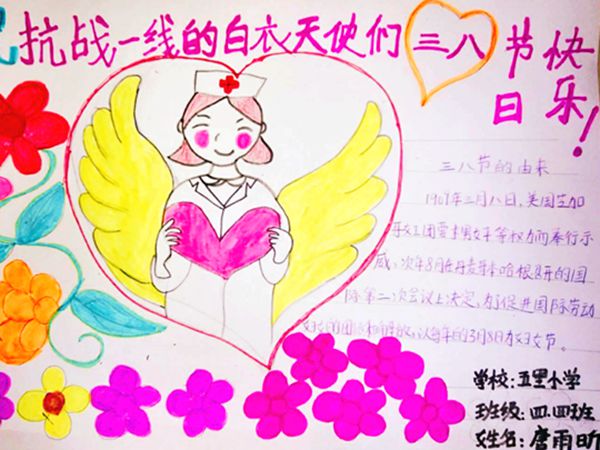 抗战一线的白衣天使们三八节快乐!
日
三八节的由来
1909年三月八日,美国芝加
哥女工因要求男女平等权力而举行示
威,次年8月在丹麦哥本哈根召开的国
际第二次会议上决定,为了促进国际劳动
妇女的团结和解放,以每年的3月8日为妇女节。
学校:五里小学
班级:四.四班
姓名:唐雨昕